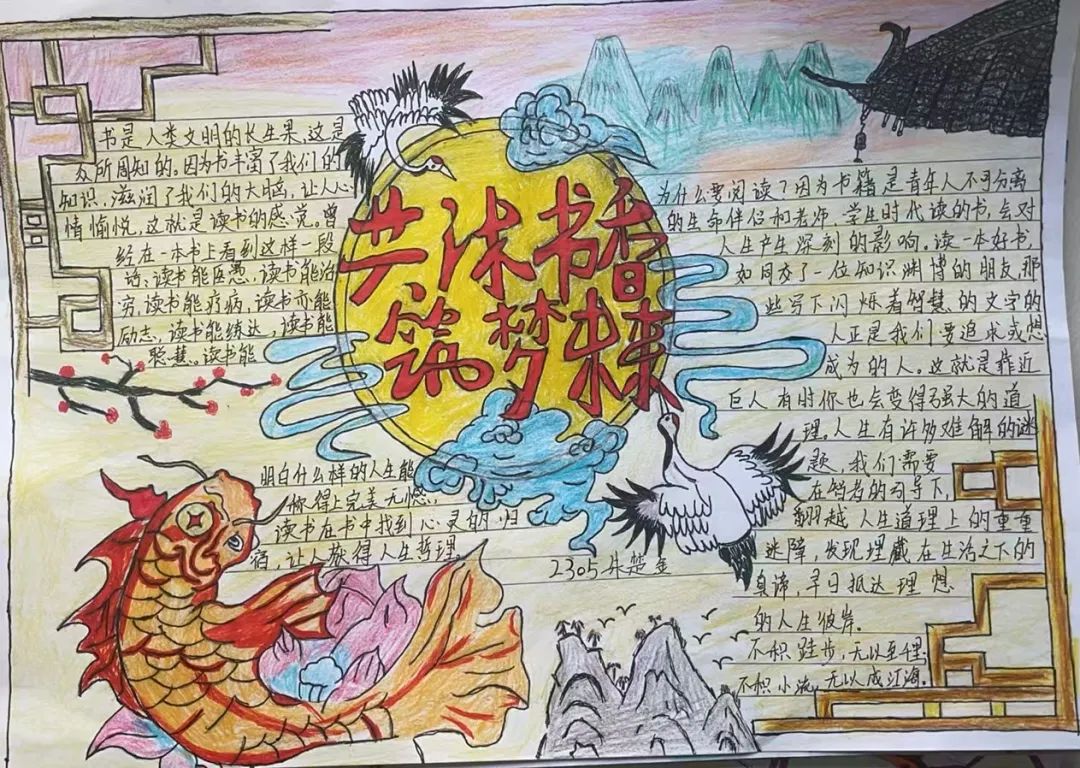 共沐书香
筑梦未来
书是人类文明的长生果,这是
众所周知的。因为书丰富了我们的
知识,滋润了我们的大脑,让人心
情愉悦,这就是读书的感觉。曾
经在一本书上看到这样一段
话:读书能医愚,读书能治
穷,读书能疗病,读书亦能
励志,读书能练达,读书能
聪慧。读书能
明白什么样的人生能
称得上完美无憾。
读书在书中找到心灵的归
宿,让人获得人生哲理
2305
为什么要阅读?因为书籍是青年人不可分离
的生命伴侣和老师。学生时代读的书,会对
人生产生深刻的影响。读一本好书,
如同交了一位知识渊博的朋友,那
些写下闪烁着智慧的文字的
人正是我们要追求或想
成为的人。这就是靠近
巨人有时你也会变得强大的道
理。人生有许多难解的谜
题,我们需要
在智者的引导下,
翻越人生道理上的重重
迷障,发现埋藏在生活之下的
真谛,早日抵达理想
的人生彼岸。
不积跬步,无以至千里;
不积小流,无以成江海。